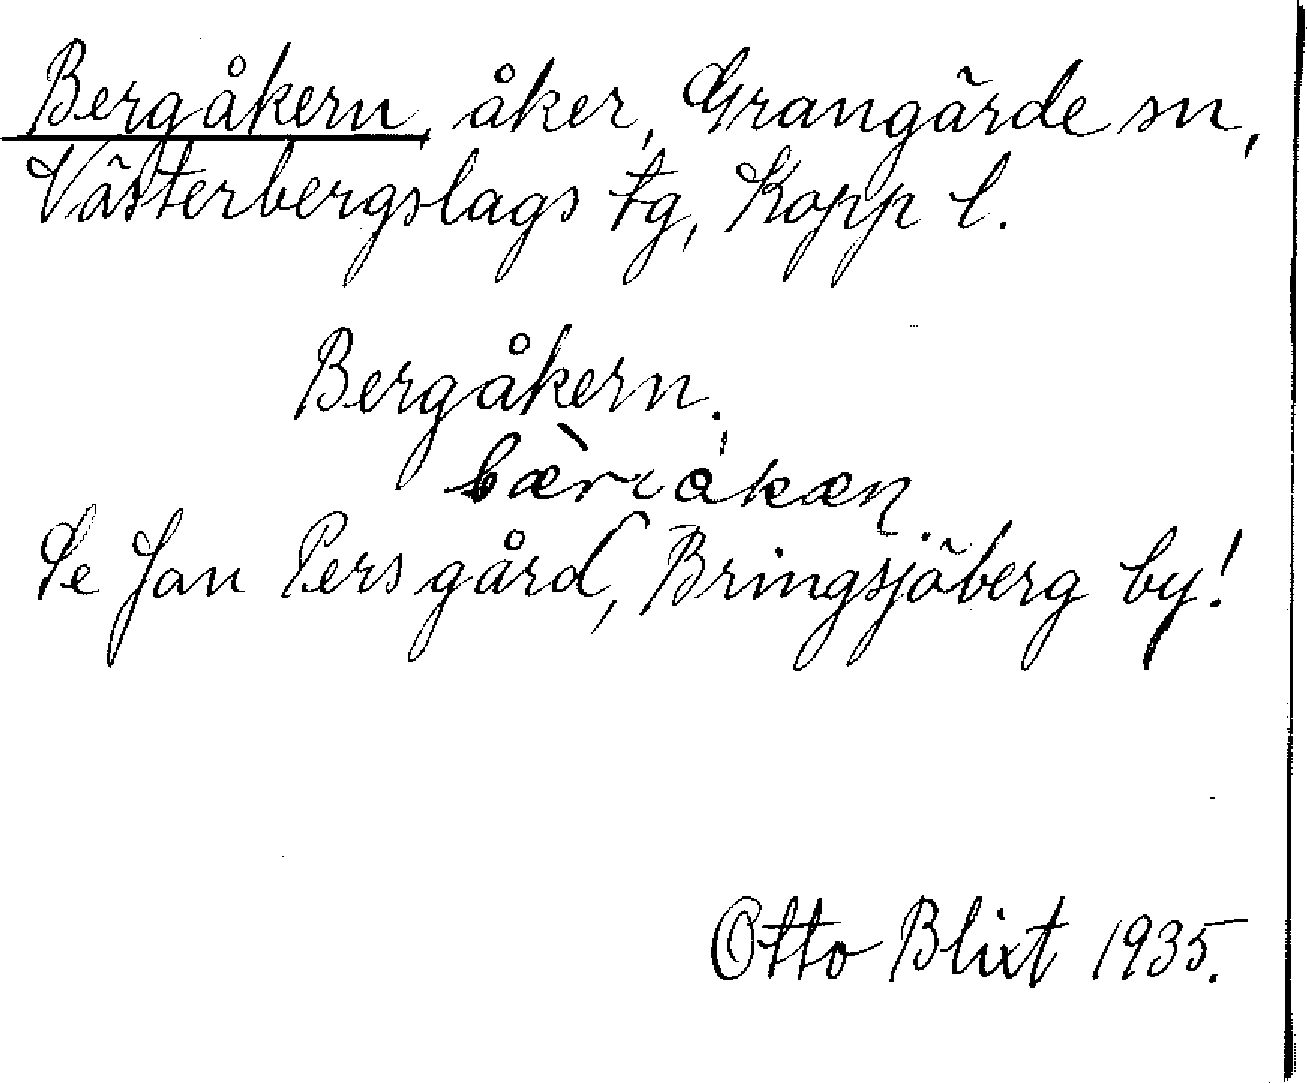 Bergåkern, åker, Grangärde sn,
Västerbergslags tg, Kopp l.
Bergåkern.
bær󠀠
Se Jan Persgård, Bringsjöberg by!
Otto Blixt 1935.